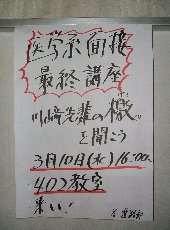 医学系面接
最終講座
川崎先輩の檄。
を聞こう
3月10日(水)16:00〜
402教室
来い!